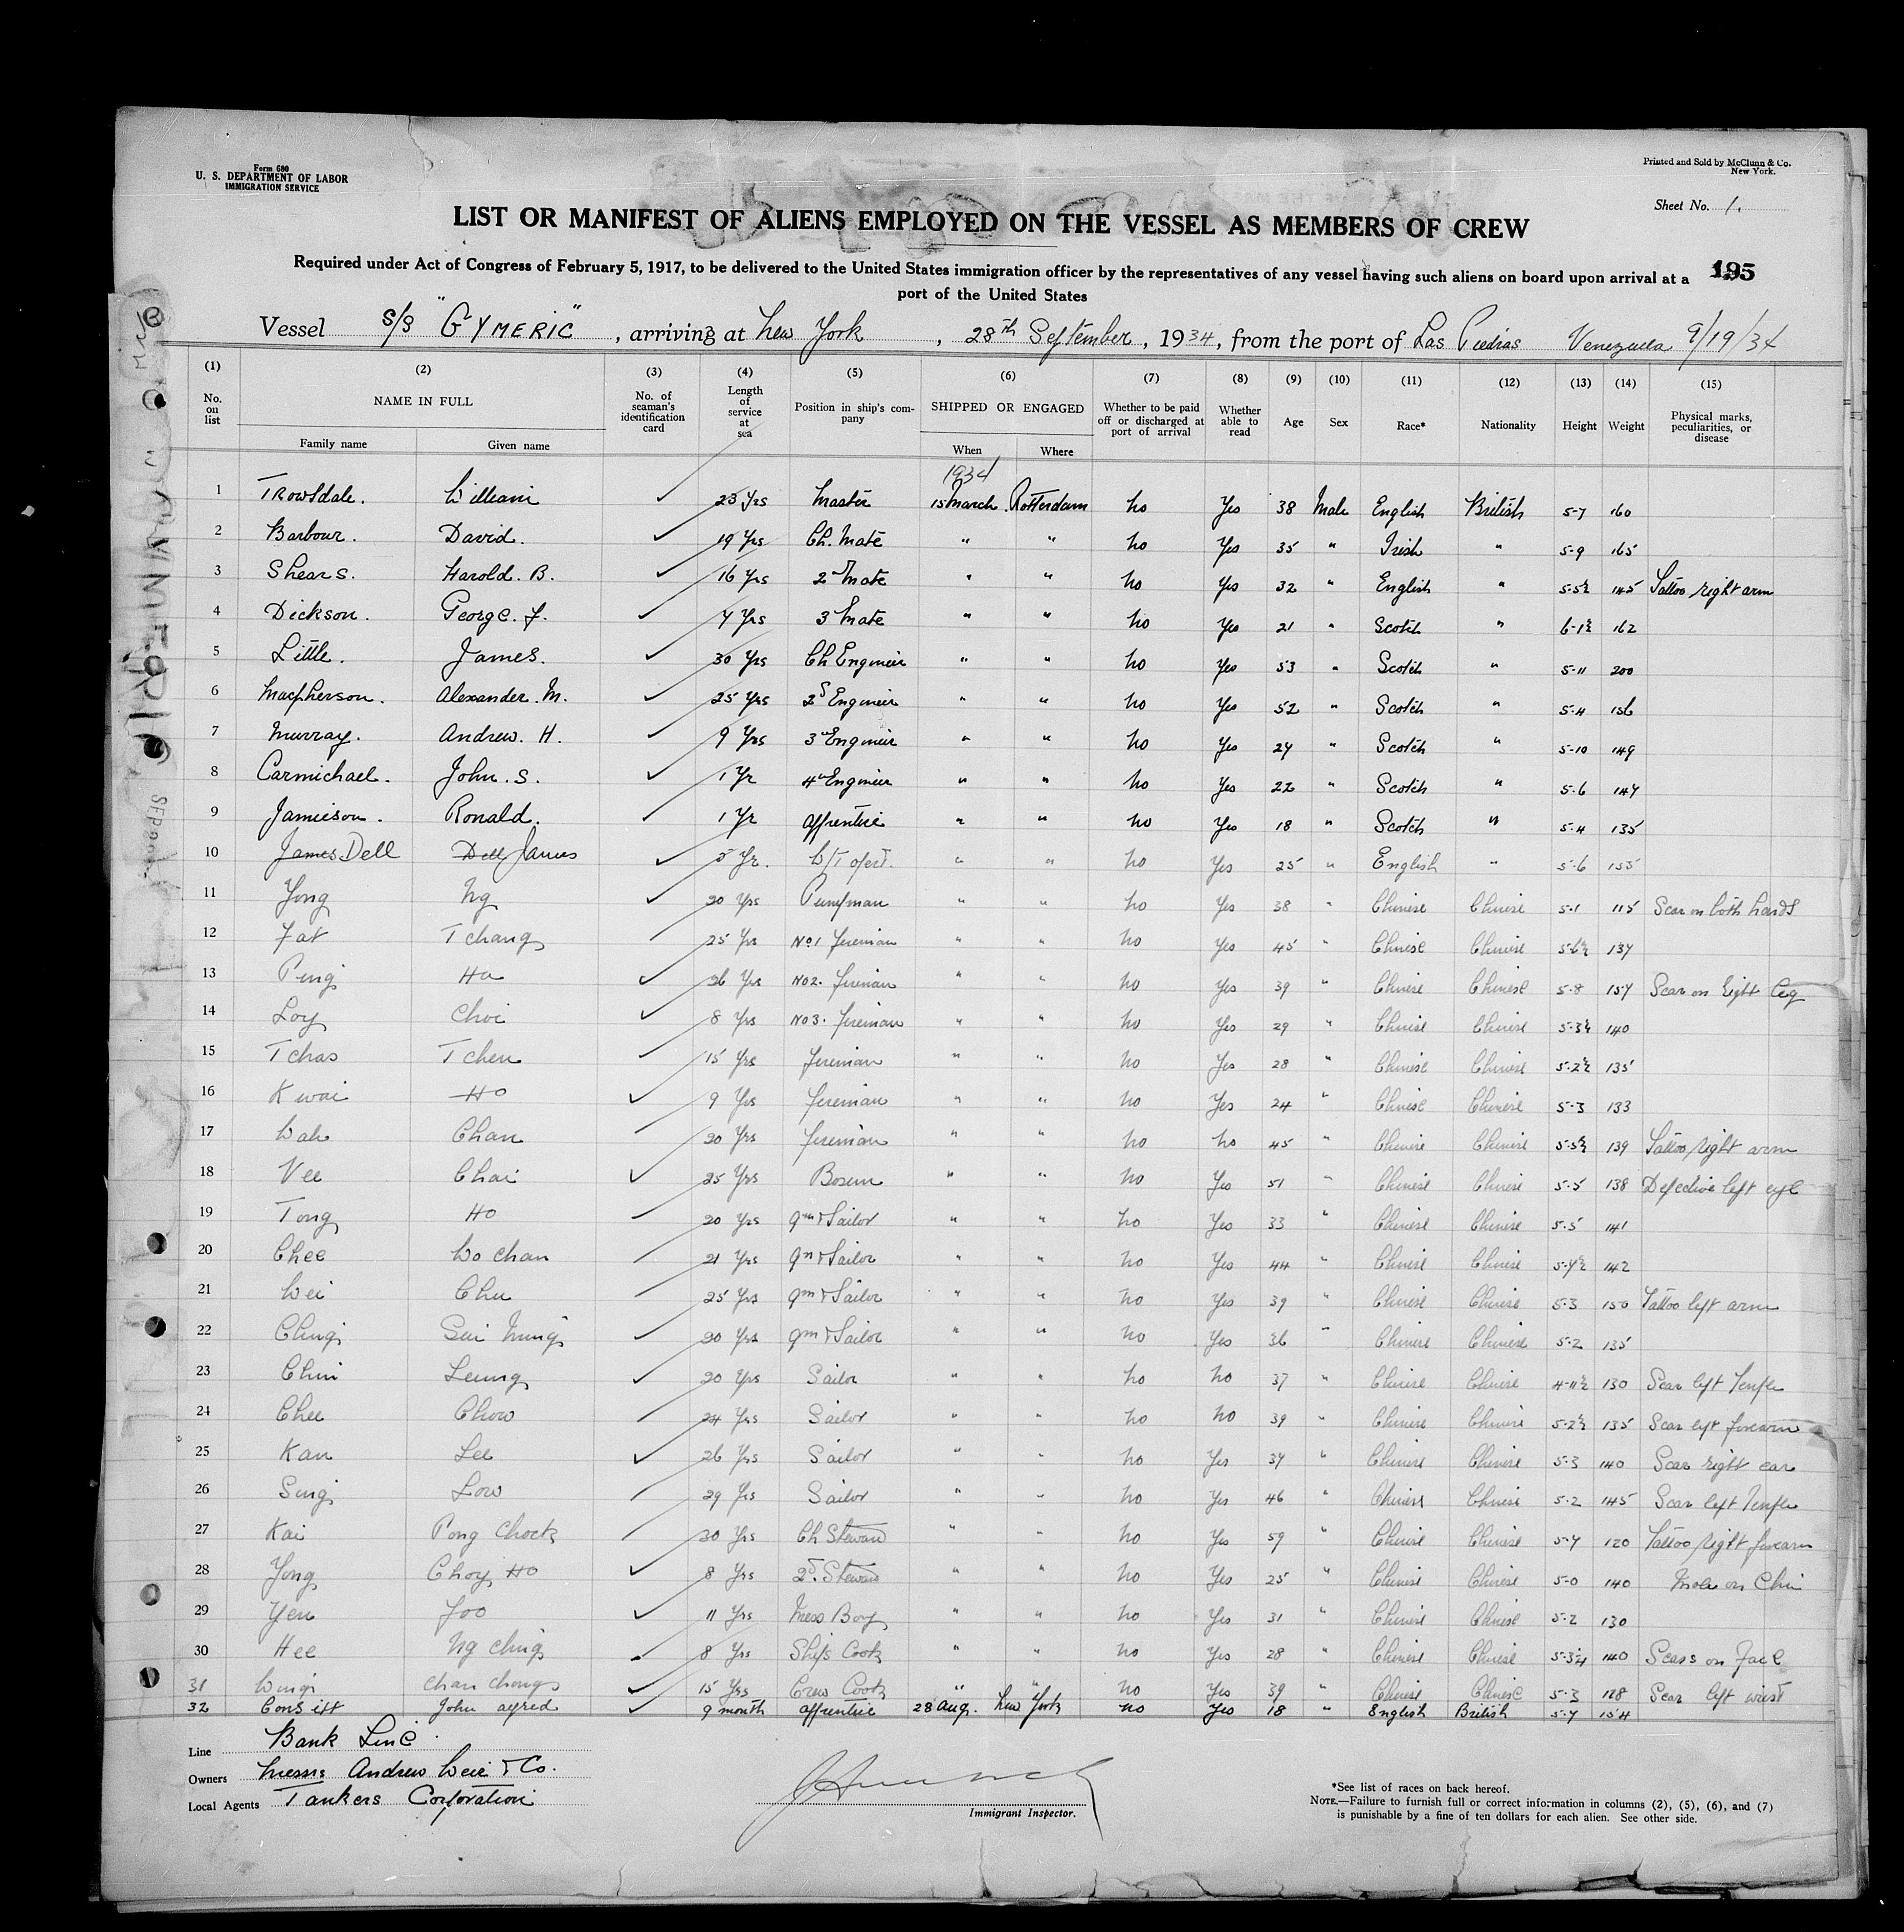 Form 680
U. S. DEPARTMENT OF LABOR
IMMIGRATION SERVICE
Printed and Sold by McClunn & Co.
New York.
Sheet No. 1.
LIST OR MANIFEST OF ALIENS EMPLOYED ON THE VESSEL AS MEMBERS OF CREW
Required under Act of Congress of February 5, 1917, to be delivered to the United States immigration officer by the representatives of any vessel having such aliens on board upon arrival at a
port of the United States
195
Vessel S/S "GYMERIC", arriving at New York, 28th September, 1934, from the port of Las Piedras Venezuela 9/19/34
(1) (2) (3) (4) (5) (6) (7) (8) (9) (10) (11) (12) (13) (14) (15)
No. on list NAME IN FULL No. of seaman's identification card Length of service at sea Position in ship's company SHIPPED OR ENGAGED Whether to be paid off or discharged at port of arrival Whether able to read Age Sex Race* Nationality Height Weight Physical marks, peculiarities, or disease
Family name Given name When Where
1934
1 Trowsdale. William 23 Yrs Master 15 March Rotterdam No Yes 38 Male English British 5-7 160
2 Barbour. David. 19 Yrs Ch. Mate " " No Yes 35 " Irish " 5-9 165
3 Shears. Harold. B. 16 Yrs 2nd Mate " " No Yes 32 " English " 5-5½ 145 Tattoo right arm
4 Dickson. George. J. 4 Yrs 3 Mate " " No Yes 21 " Scotch " 6-1½ 162
5 Little. James. 30 Yrs Ch Engineer " " No Yes 53 " Scotch " 5-11 200
6 Macpherson. Alexander. M. 25 Yrs 2d Engineer " " No Yes 52 " Scotch " 5-4 156
7 Murray. Andrew. H. 9 Yrs 3 Engineer " " No Yes 24 " Scotch " 5-10 149
8 Carmichael. John. S. 1 Yr 4 Engineer " " No Yes 22 " Scotch " 5-6 147
9 Jamieson. Ronald. 1 Yr Apprentice " " No Yes 18 " Scotch " 5-4 135
10 James Dell Dell James 5 Yr. W/T opert. " " No Yes 25 " English " 5-6 155
11 Yong Ng 20 Yrs Pumpman " " No Yes 38 " Chinese Chinese 5-1 115 Scar on both hands
12 Fat Tchang 25 Yrs No1 fireman " " No Yes 45 " Chinese Chinese 5-6½ 137
13 Ping Ho 26 Yrs No2. fireman " " No Yes 39 " Chinese Chinese 5-8 157 Scar on right leg
14 Loy Choi 8 Yrs No3. fireman " " No Yes 29 " Chinese Chinese 5-3½ 140
15 Tchas Tchen 15 Yrs fireman " " No Yes 28 " Chinese Chinese 5-2½ 135
16 Kwai Ho 9 Yrs fireman " " No Yes 24 " Chinese Chinese 5-3 133
17 Wah Chan 20 Yrs fireman " " No No 45 " Chinese Chinese 5-5½ 139 Tattoo right arm
18 Vee Chai 25 Yrs Bosun " " No Yes 51 " Chinese Chinese 5-5 138 Defective left eye
19 Tong Ho 20 Yrs Qm & Sailor " " No Yes 33 " Chinese Chinese 5-5 141
20 Chee Wo Chan 21 Yrs Qm & Sailor " " No Yes 44 " Chinese Chinese 5-4½ 142
21 Wei Chu 25 Yrs Qm & Sailor " " No Yes 39 " Chinese Chinese 5-3 150 Tattoo left arm
22 Ching Sui Ming 20 Yrs Qm & Sailor " " No Yes 36 " Chinese Chinese 5-2 135
23 Chin Leung 20 Yrs Sailor " " No No 37 " Chinese Chinese 4-11½ 130 Scar left temple
24 Chee Chow 24 Yrs Sailor " " No No 39 " Chinese Chinese 5-2½ 135 Scar left forearm
25 Kan Lee 26 Yrs Sailor " " No Yes 37 " Chinese Chinese 5-3 140 Scar right ear
26 Sing Low 29 Yrs Sailor " " No Yes 46 " Chinese Chinese 5-2 145 Scar left temple
27 Kai Pong Chock 30 Yrs Ch Steward " " No Yes 59 " Chinese Chinese 5-4 120 Tattoo right forearm
28 Yong Choy Ho 8 Yrs 2d. Steward " " No Yes 25 " Chinese Chinese 5-0 140 Mole on Chin
29 Yen Foo 11 Yrs Mess Boy " " No Yes 31 " Chinese Chinese 5-2 130
30 Hee Ng Ching 8 Yrs Ships Cook " " No Yes 28 " Chinese Chinese 5-3¼ 140 Scars on Face
31 Wing Chan Chong 15 Yrs Crew Cook " " No Yes 39 " Chinese Chinese 5-3 128 Scar left wrist
32 Consitt John Alfred 9 month Apprentice 28 Aug. New York No Yes 18 " English British 5-7 154
Line Bank Line.
Owners Messrs Andrew Weir & Co.
Local Agents Tankers Corporation
Immigrant Inspector.
*See list of races on back hereof.
NOTE.—Failure to furnish full or correct information in columns (2), (5), (6), and (7)
is punishable by a fine of ten dollars for each alien. See other side.